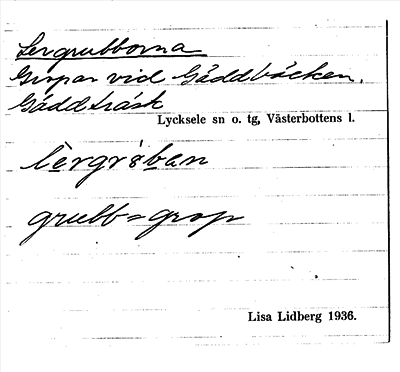 Lergrubborna
Gropar vid Gäddbäcken.
Gäddträsk
Lycksele sn o. tg, Västerbottens l.
grubb = grop
Lisa Lidberg 1936.